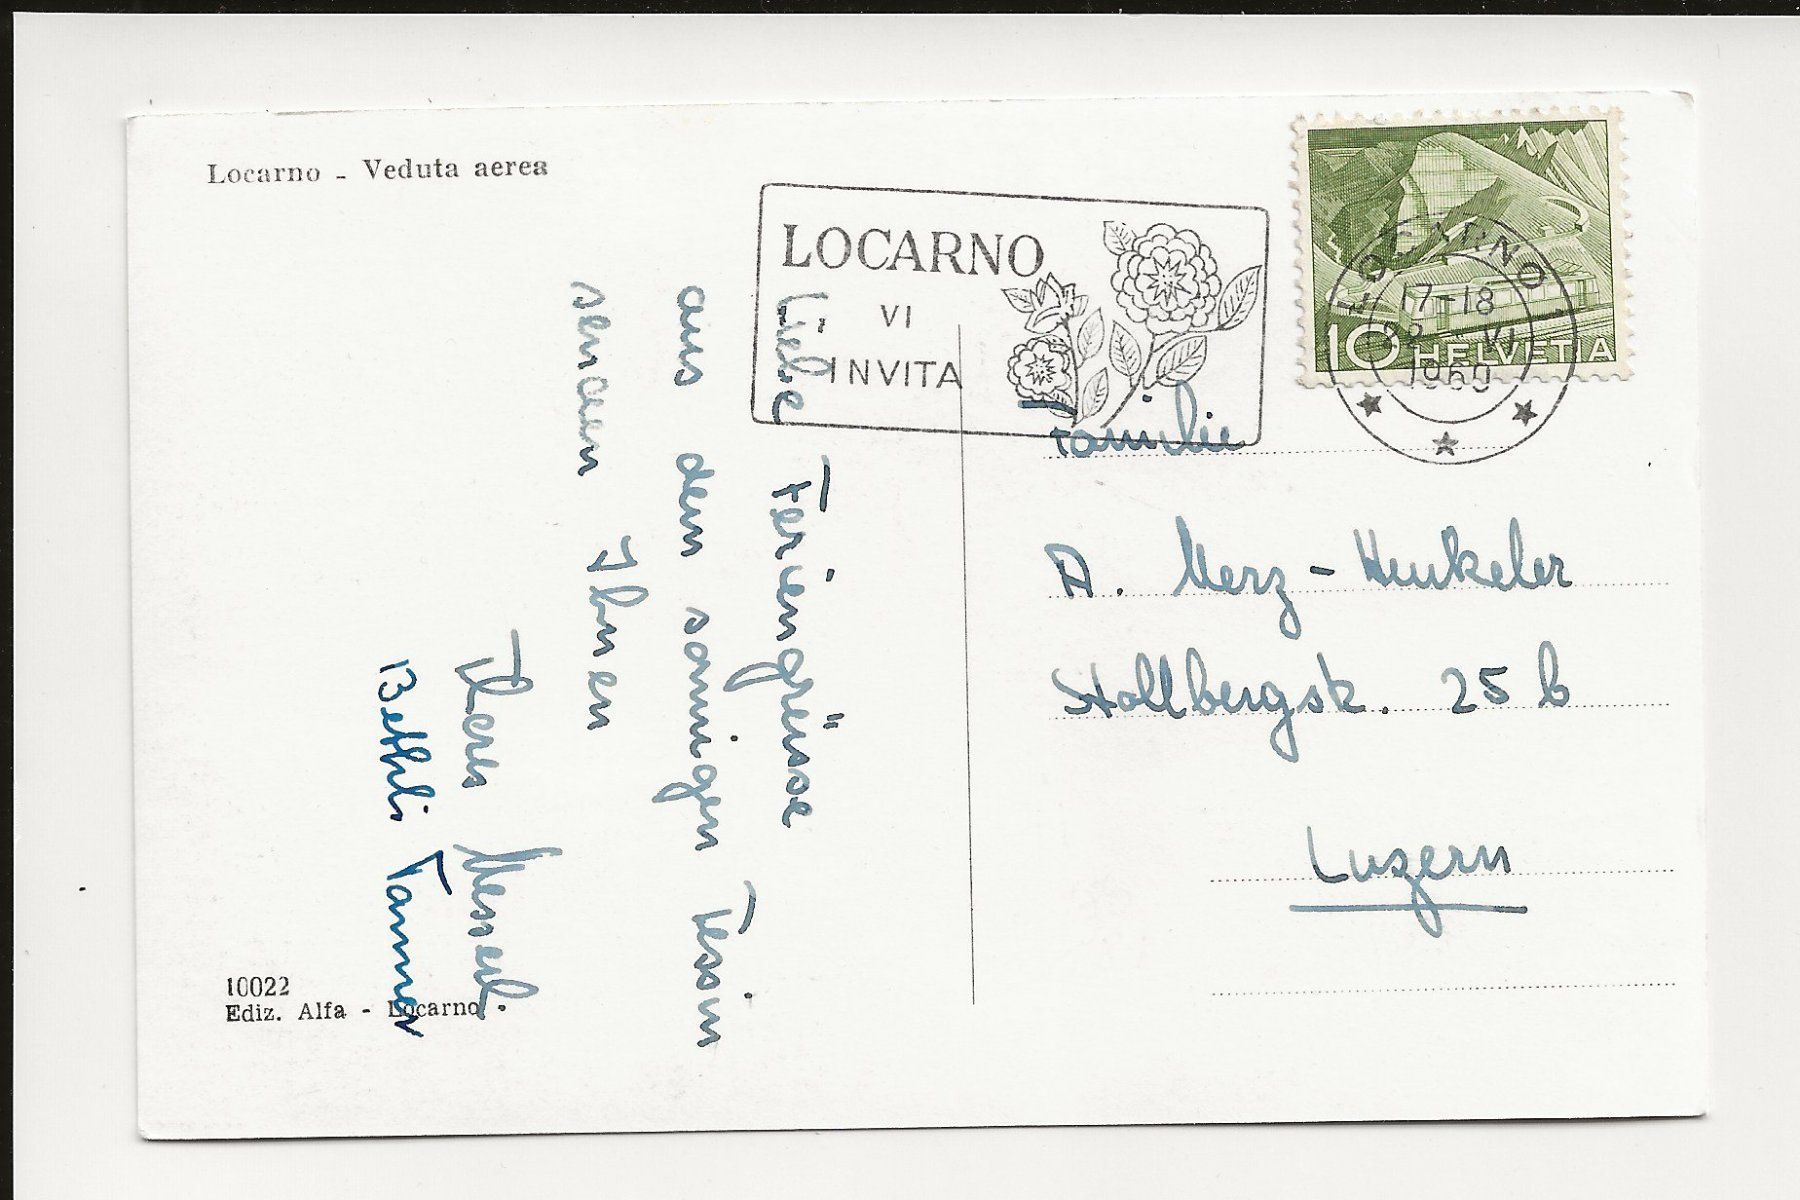 Locarno - Veduta aerea
LOCARNO
VI
INVITA
LOCARNO
17-18
VI
1960
10 HELVETIA
Liebe Feriengrüsse
aus dem sonnigen Tessin
senden Ihnen
Bethli Tanner
Familie
A. Merz-Hunkeler
25 b
Luzern
10022
Ediz. Alfa - Locarno